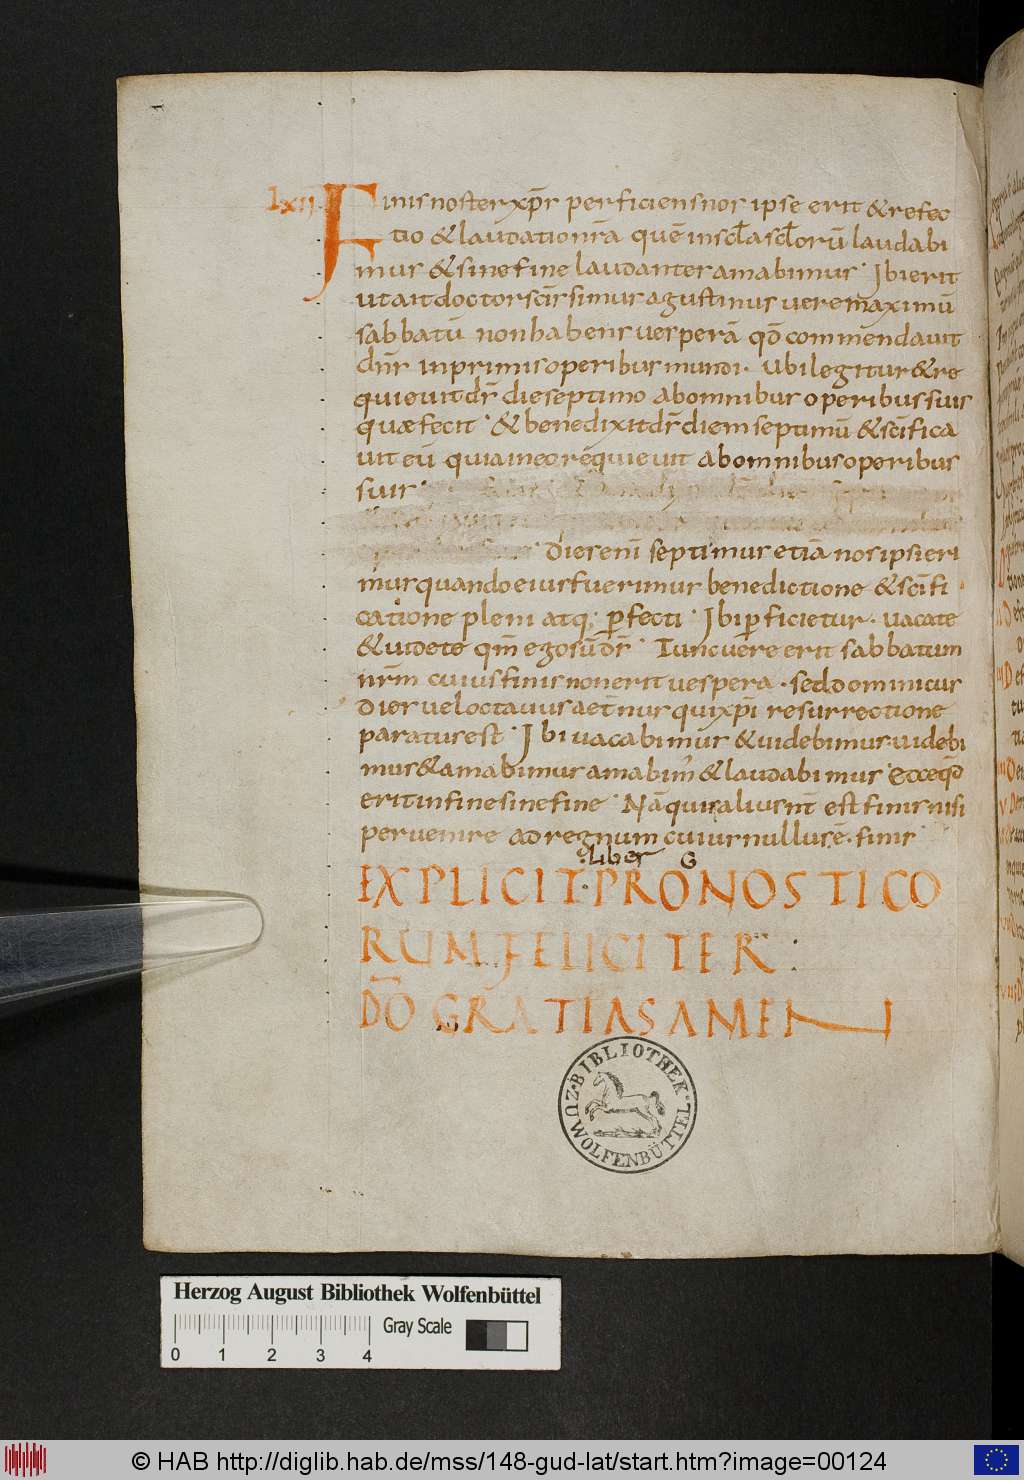 Lxii Finis noster xp̄s perficiens nos ipse erit & refec
tio & laudatio nr̄a quē in scl̄a scl̄orū laudabi
mus & sine fine laudantes amabimus · Ibi erit
ut ait doctor scīssimus agustinus vere maximū
sabbatū non habens vesperā qđ commendavit
dn̄s in primis operibus mundi · ubi legitur & re
quievit dс̄ die septimo ab omnibus operibus suis
quæ fecit · & benedixit dс̄ diem septimū & scīfica
vit eū quia in eo requievit ab omnibus operibus
suis ·
dies enī septimus etiā nos ipsi eri
mus quando eius fuerimus benedictione & scīfi
catione pleni atq; ꝑfecti · Ibi ꝑficietur · vacate
& videte qm̄ ego sū dс̄ · Tunc vere erit sabbatum
nr̄m cuius finis non erit vespera · sed dominicus
dies veloc tavus aet̄nus qui xp̄i resurrectione
paratus est · Ibi vacabimus & videbimus · videbi
mus & amabimus amabim' & laudabimus · Ecce qđ
erit in fine sine fine · Nā quis alius nr̄ est finis nisi
pervenire ad regnum cuius nullus ē · finis
: Liber G
EXPLICIT · PRONOSTICO
RUM FELICITER :
DŌ GRATIAS AMEN
BIBLIOTHEK · ZU · WOLFENBÜTTEL
Herzog August Bibliothek Wolfenbüttel
Gray Scale
0 1 2 3 4
© HAB http://diglib.hab.de/mss/148-gud-lat/start.htm?image=00124